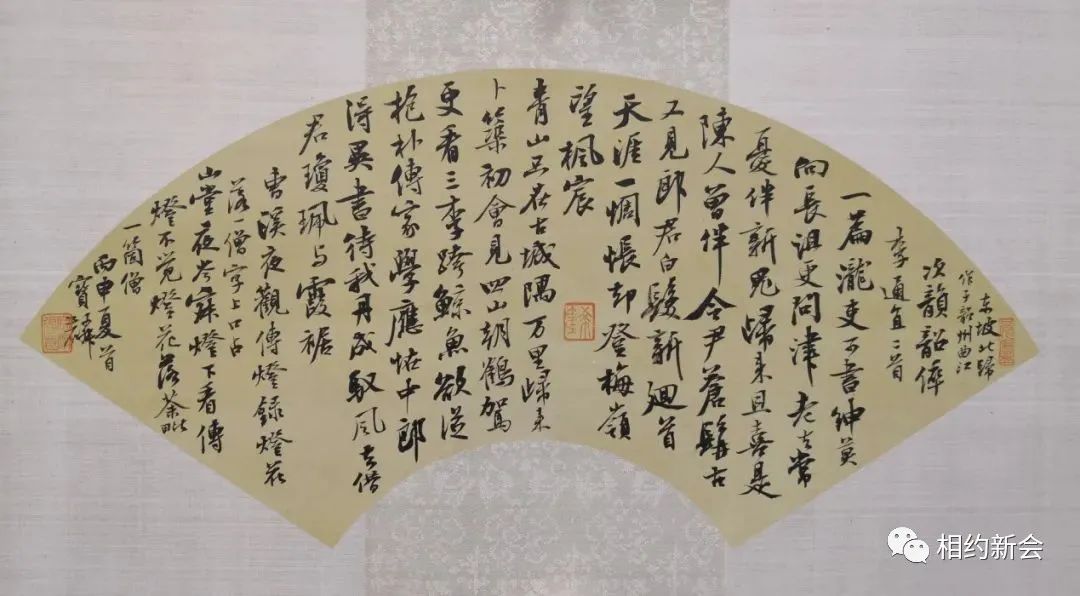 東坡北歸
作于韶州曲江
次韻韶倅
李通直二首
一篇瀧吏可書紳莫
向長沮更問津老去常
憂伴新鬼歸来且喜是
陳人曾伴令尹蒼髯古
又見郎君白髮新迴首
天涯一惆悵却登梅嶺
望楓宸
青山只在古城隅万里歸来
卜築初會見四山朝鶴駕
更看三李跨鯨魚欲從
抱朴傳家學應怪中郎
得異書待我丹成馭風去借
君瓊珮与霞裾
曹溪夜觀傳燈錄燈花
落一僧字上口占
山堂夜岑寂燈下看傳
燈不覺燈花落荼毗
一箇僧
丙申夏首
寶
相约新会